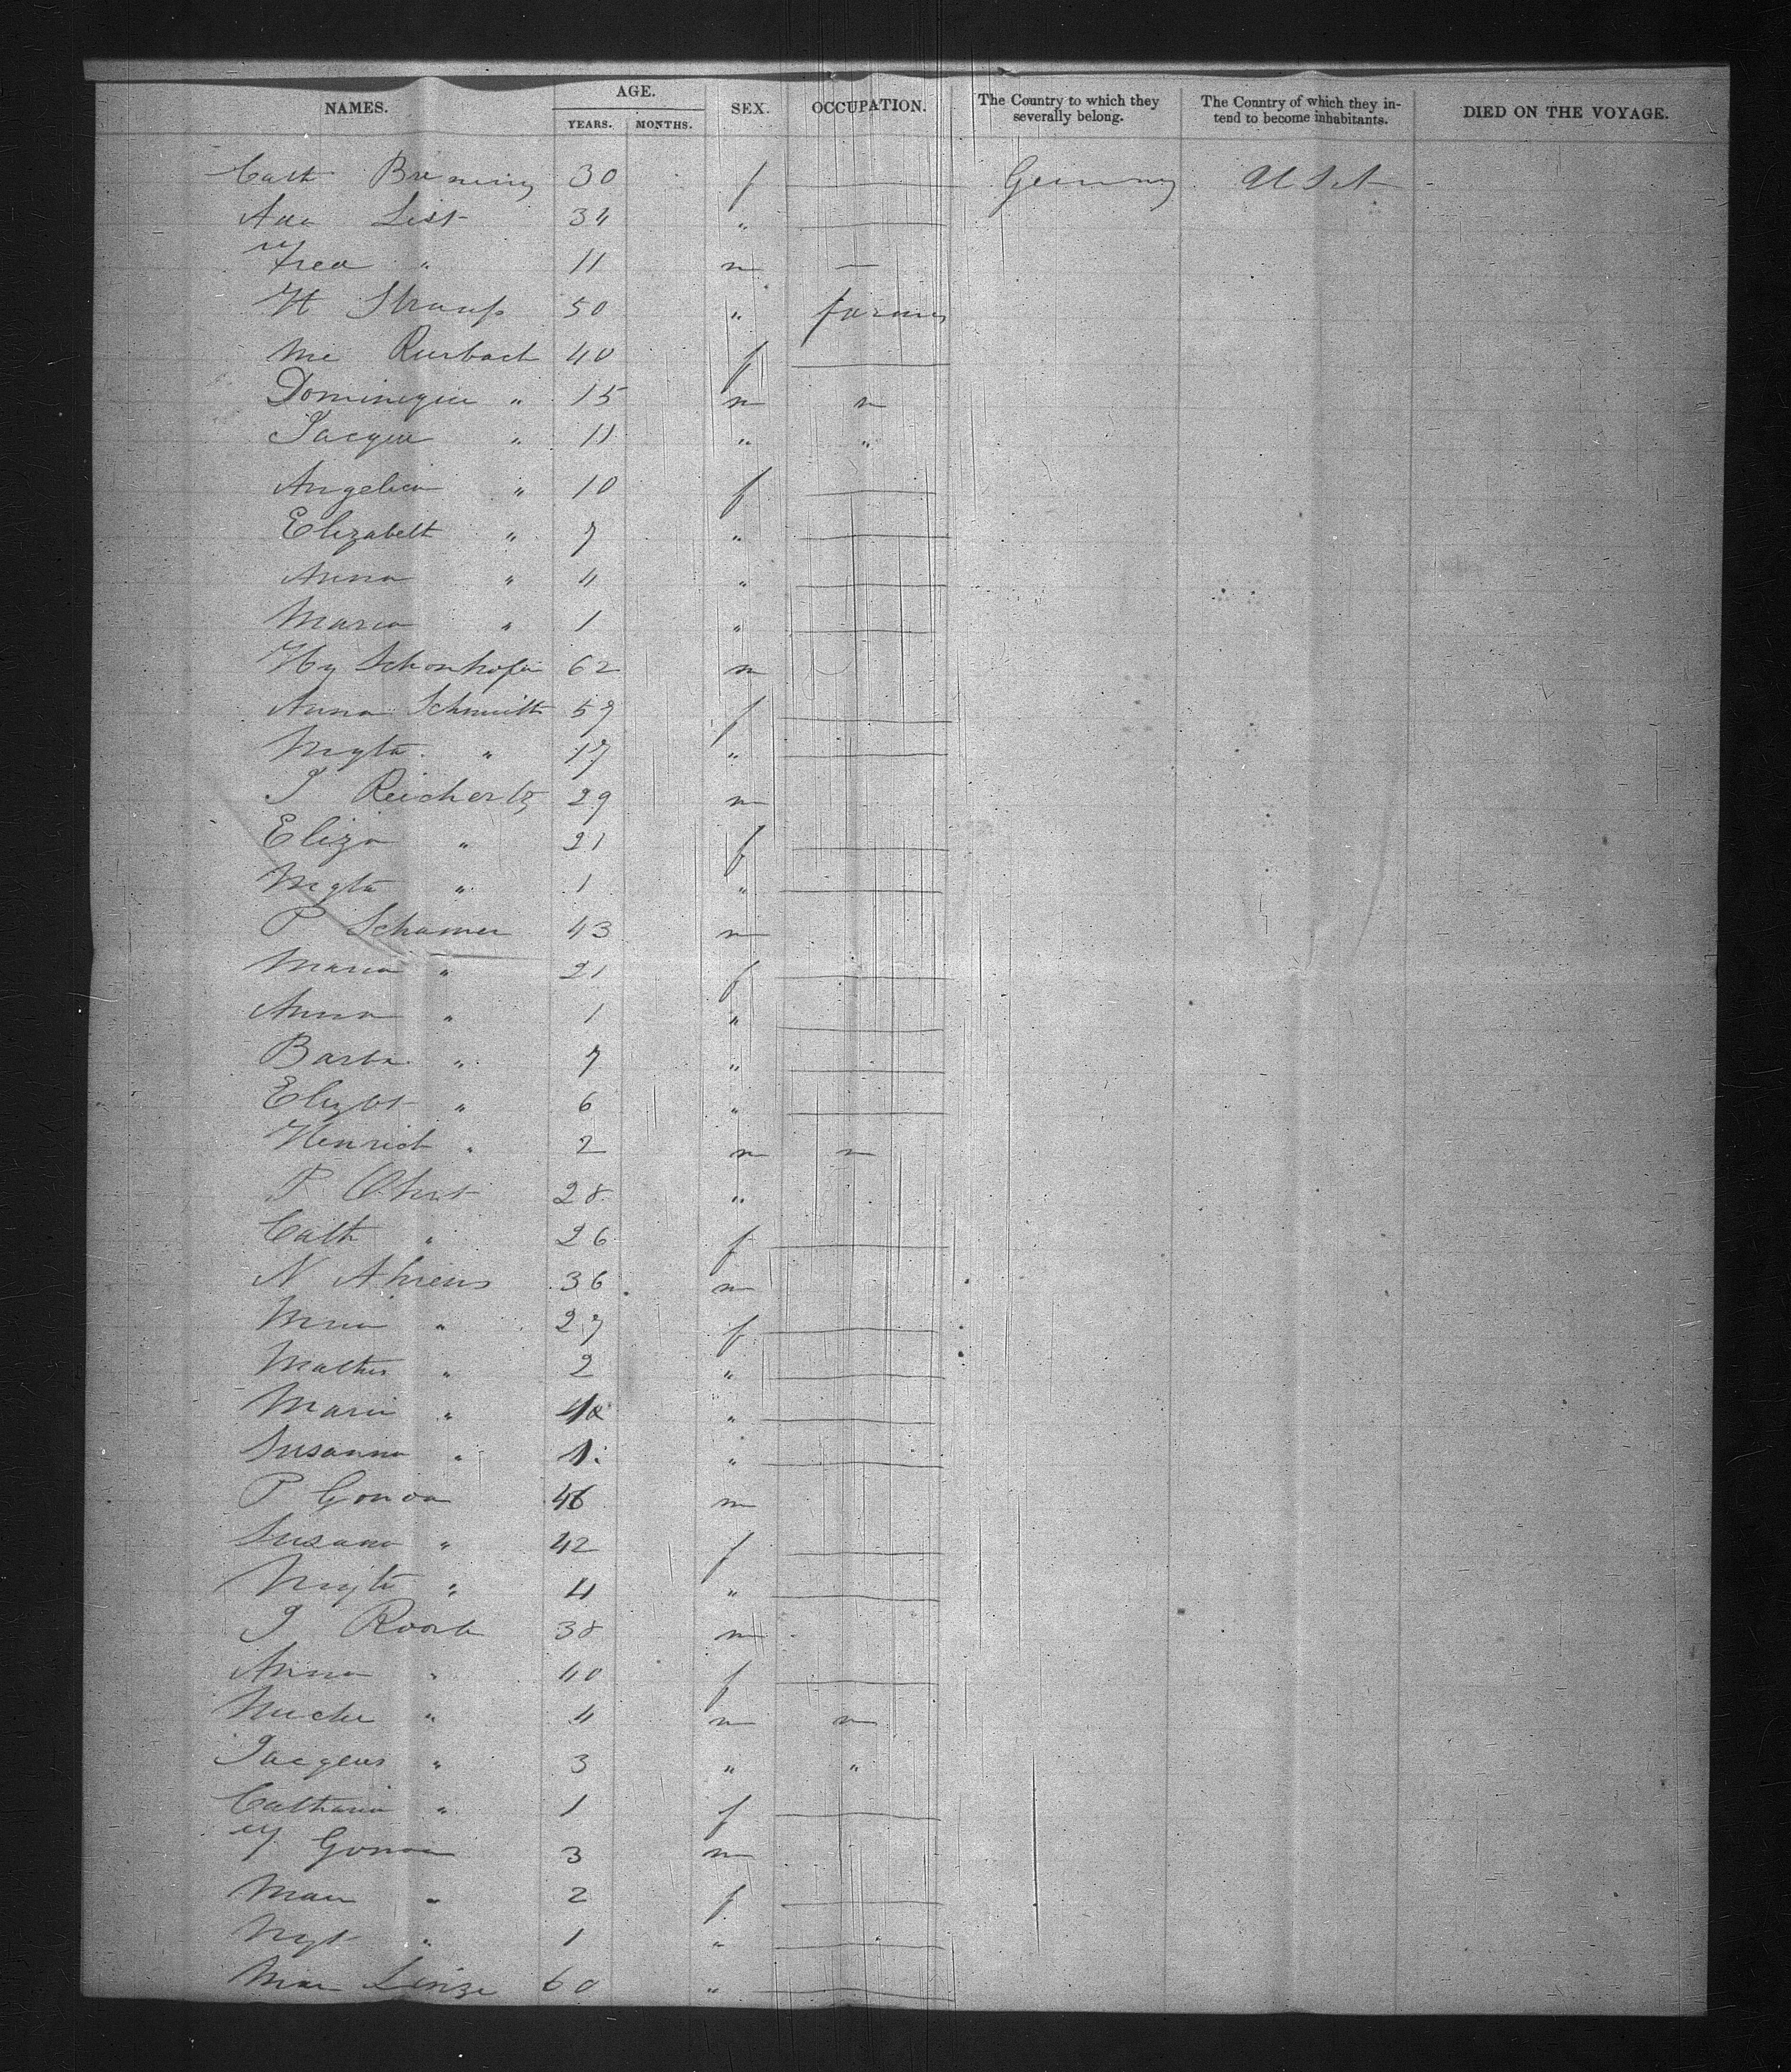 NAMES. AGE. YEARS. MONTHS. SEX. OCCUPATION. The Country to which they severally belong. The Country of which they intend to become inhabitants. DIED ON THE VOYAGE.
Cath 30 f — Germany U S A
Ada List 34 " —
Fred " 11 m —
H Strauss 50 " farmer
40 f —
Dominique " 15 m "
Jacque " 11 " "
Angelica " 10 f —
Elizabeth " 7 " —
Anna " 4 " —
Maria " 1 " —
Hy Schonhofen 62 m
Anna Schmitt 59 f —
Mgta " 17 " —
J Reichertz 29 m
Eliza " 21 f —
Mgta " 1 " —
P 43 m
Maria " 21 f —
Anna " 1 " —
Barba " 7 " —
Elizbt " 6 " —
Henrich " 2 m "
P Ohst 28 "
Cath " 26 f —
N Ahrens 36 m
Maria " 27 f —
Mathis " 2 " —
Maria " " —
Susanna " 1 " —
P 46 m
Susana " 42 f —
Mgta " 4 " —
J 38 m
Anna " 40 f —
" 4 m "
Jacques " 3 " "
Catharia " 1 f —
3 m
" 2 f —
Mgt " 1 " —
60 " —